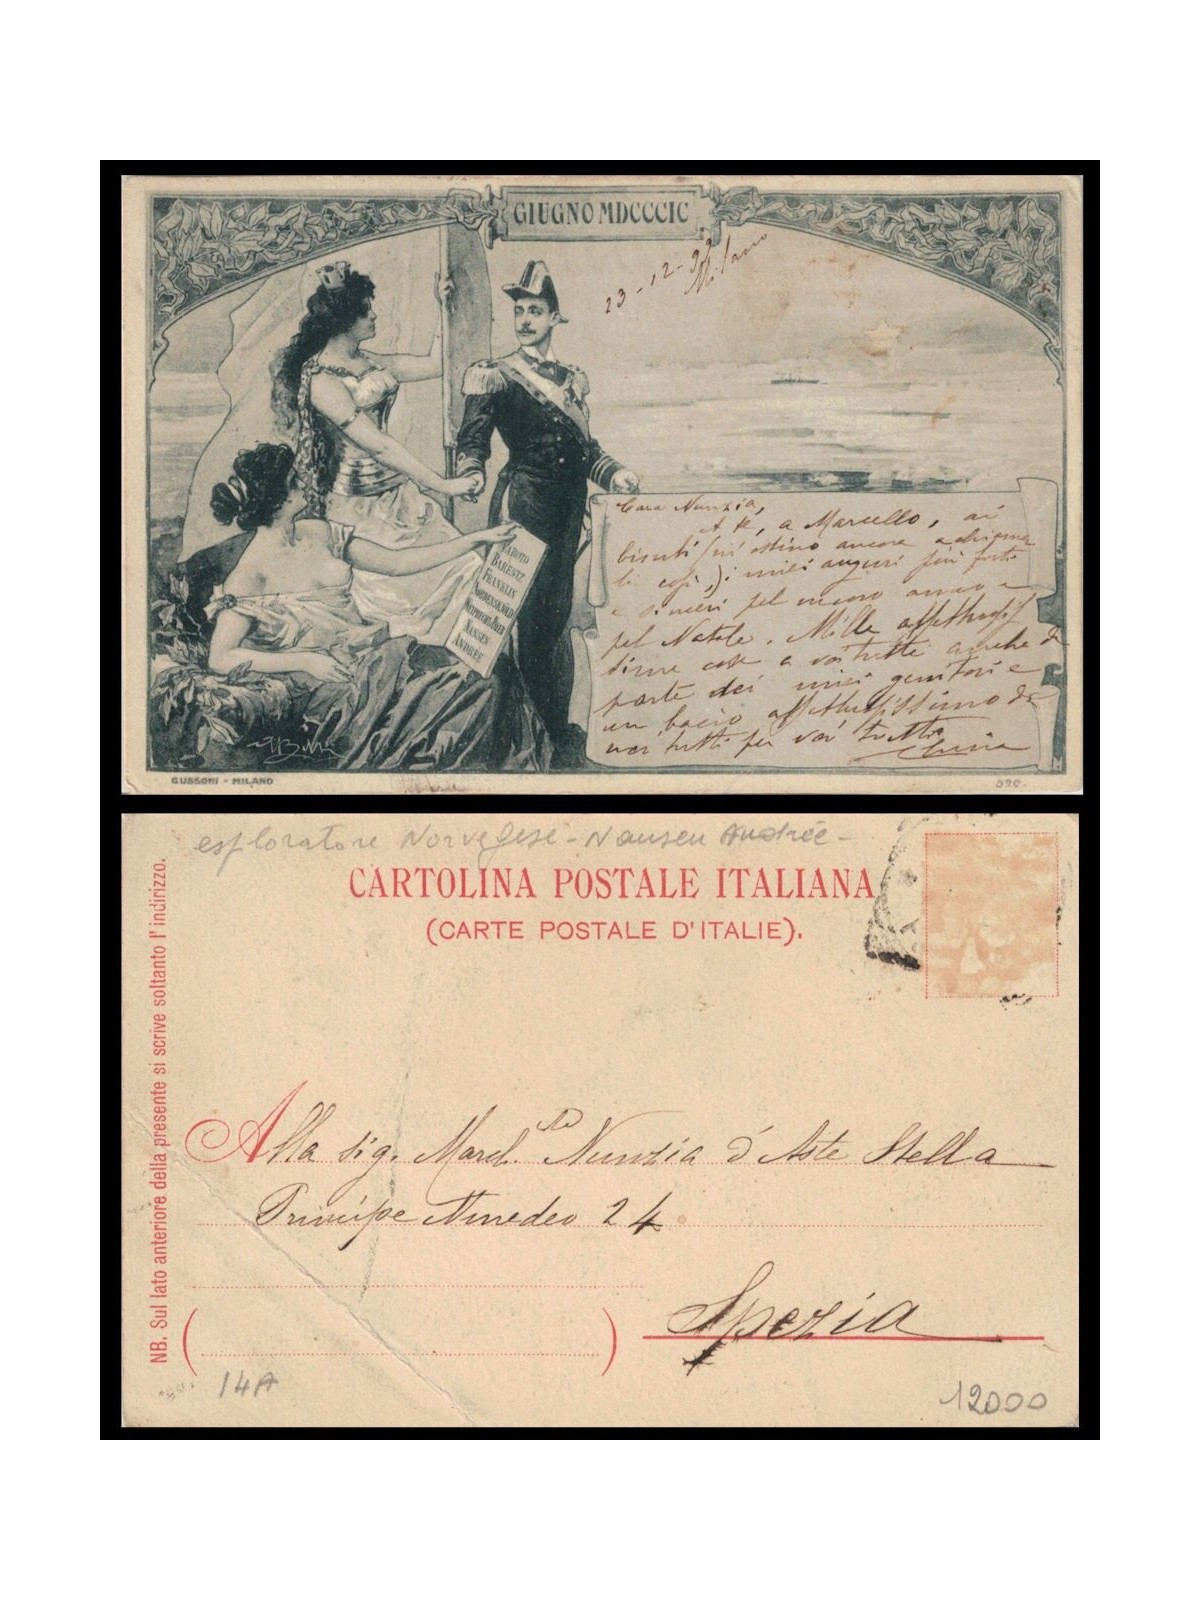 GIUGNO MDCCCIC
23-12-99
Milano
CABOTO
BARENTZ
FRANKLIN
NORDENSKJÖLD
WEYPRECHT-PAYER
NANSEN
ANDRÉE
Cara Nunzia,
A te, a Marcello, ai
ancora a chiamar
li così,) i miei auguri più forti
e sinceri pel nuovo anno e
pel Natale. Mille affettuose
cose a voi tutti anche da
parte dei miei genitori e
un bacio affettuosissimo da
voi tutti
GUSSONI - MILANO
esploratore Norvegese - Nansen Andrée -
CARTOLINA POSTALE ITALIANA
(CARTE POSTALE D'ITALIE).
NB. Sul lato anteriore della presente si scrive soltanto l'indirizzo.
Alla sig. March.sa Nunzia d'Aste Stella
Principe Amedeo 24
Spezia
14A
12000